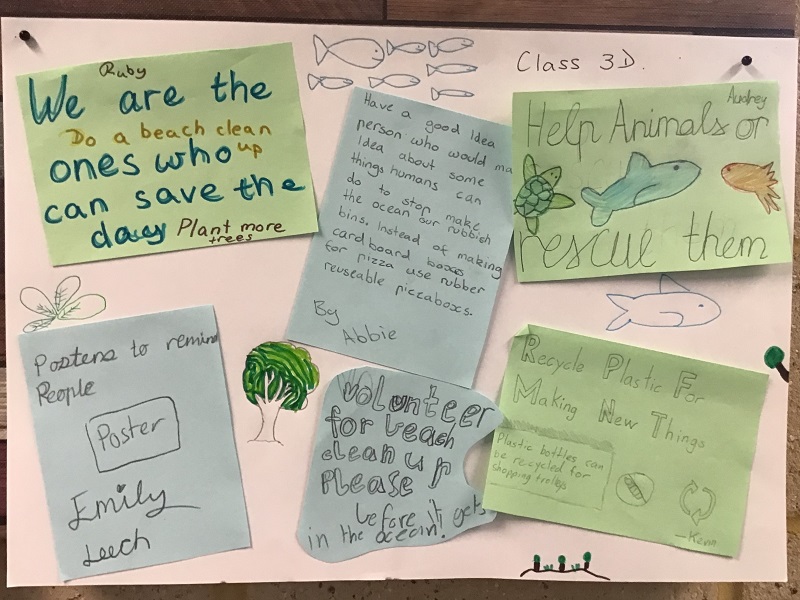 Class 3D.
Ruby
We are the
Do a beach clean
up
ones who
can save the
day
Plant more
trees
Have a good Idea
person who would ma
Idea about some
things humans can
do to stop make
the ocean our rubbish
bins. Instead of making
cardboard boxes
for pizza use rubber
reuseable pizzaboxes.
By
Abbie
Audrey
Help Animals or
rescue them
Posters to remind
People
Poster
Emily
Leech
Volunteer
for beach
clean up
Please
before it gets
in the ocean!
Recycle Plastic For
Making New Things
Plastic bottles can
be recycled for
shopping